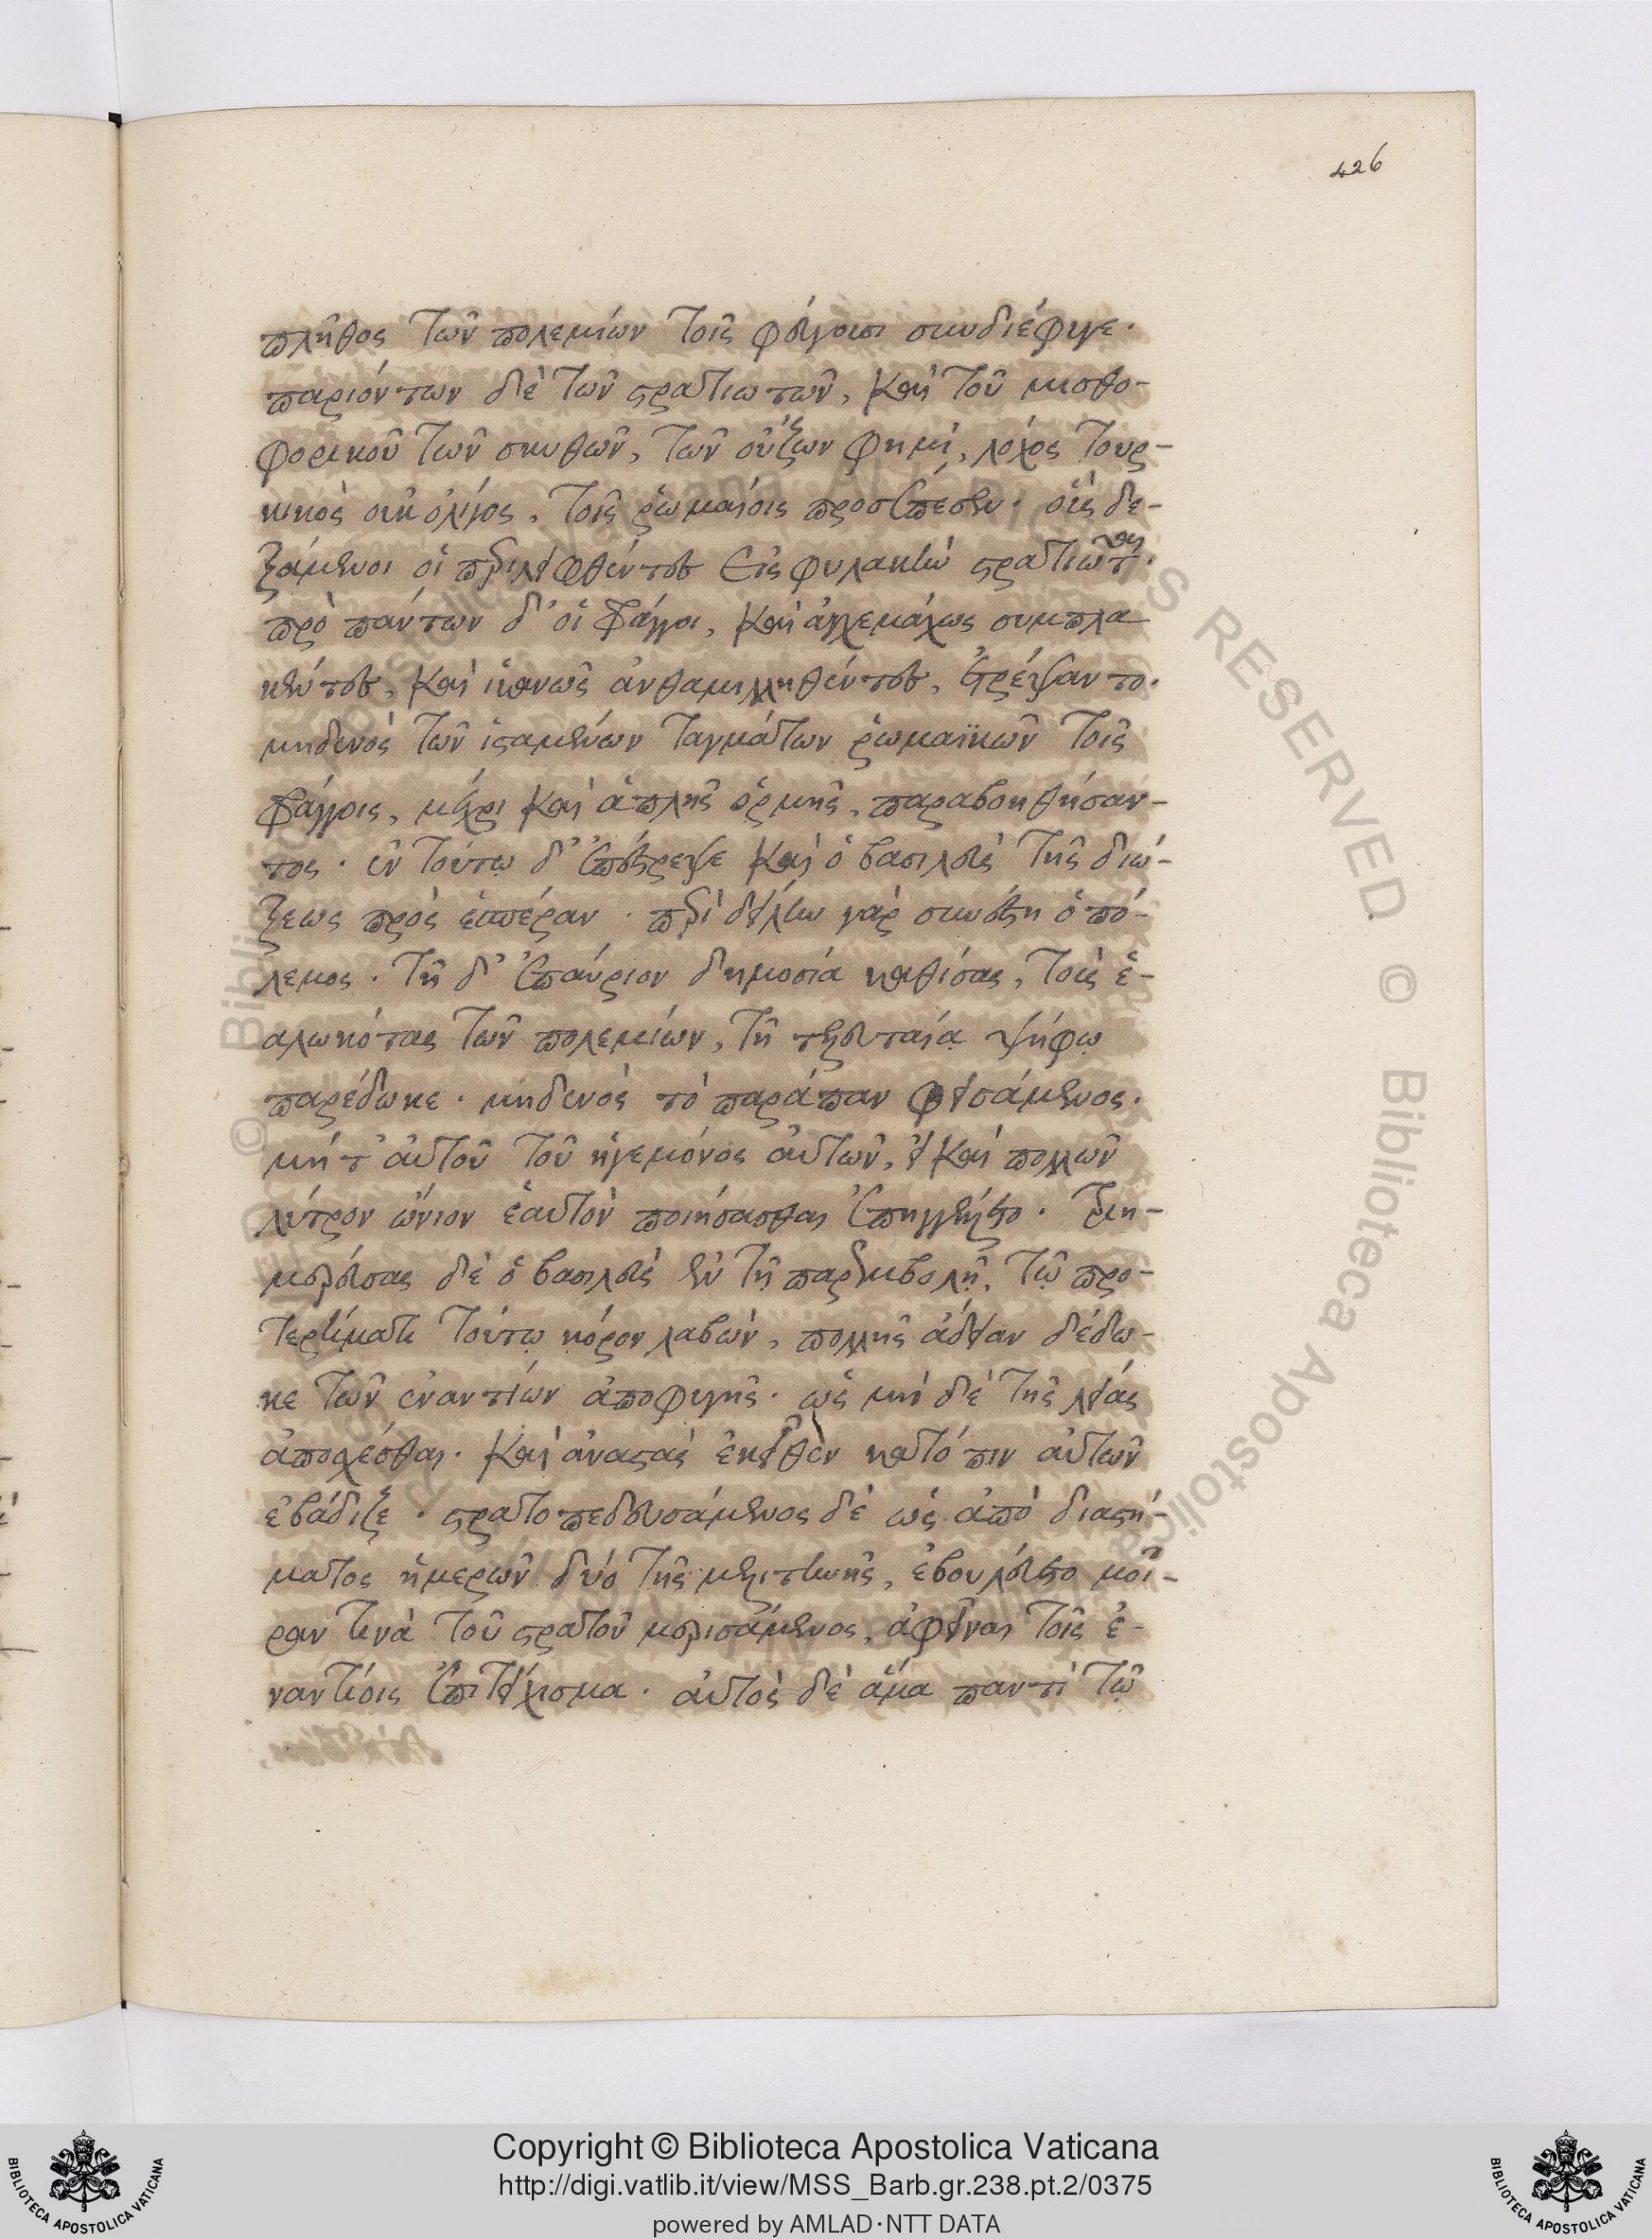 426
πλῆθος τῶν πολεμίων τοῖς φεύγουσι συνδιέφυγε·
παριόντων δὲ τῶν στρατιωτῶν, καὶ τοῦ μισθο-
φορικοῦ τῶν σκυθῶν, τῶν οὔζων φημὶ, λόχος τουρ-
κικὸς οὐκ ὀλίγος, τοῖς ῥωμαίοις προσέπεσεν· οὓς δε-
ξάμενοι οἱ περιλειφθέντες εἰς φυλακὴν στρατιῶται·
πρὸ πάντων δ' οἱ φράγγοι, καὶ ἀγχεμάχως συμπλα
κέντες, καὶ ἱκανῶς ἀνθαμιλληθέντες, ἐτρέψαντο·
μηδενὸς τῶν ἱσταμένων ταγμάτων ῥωμαϊκῶν τοῖς
φράγγοις, μέχρι καὶ ἁπλῆς ὁρμῆς, παραβοηθήσαν-
τος· ἐν τούτῳ δ' ἐπέστρεψε καὶ ὁ βασιλεὺς τῆς διώ-
ξεως πρὸς ἑσπέραν· περὶ δείλην γὰρ συνέστη ὁ πό-
λεμος· τῇ δ' ἐπαύριον δημοσία καθίσας, τοὺς ἑ-
αλωκότας τῶν πολεμίων, τῇ τελευταία ψήφῳ
παρέδωκε· μηδενὸς τὸ παράπαν φεισάμενος·
μήτ' αὐτοῦ τοῦ ἡγεμόνος αὐτῶν, εἰ καὶ πολλῶν
λύτρον ὤνιον ἑαυτὸν ποιήσασθαι ἐπηγγείλατο· τριη-
μερεύσας δὲ ὁ βασιλεὺς ἐν τῇ παρεμβολῇ, τῷ προ-
τερήματι τούτῳ κόρον λαβὼν, πολλῆς ἄδειαν δέδω-
κε τῶν ἐναντίων ἀποφυγῆς· ὡς μὴ δὲ τῆς λείας
ἀποσχέσθαι· καὶ ἀναστὰς ἐκεῖθεν κατόπιν αὐτῶν
ἐβάδιζε· στρατοπεδευσάμενος δὲ ὡς ἀπὸ διαστή-
ματος ἡμερῶν δύο τῆς μελιτηνῆς, ἐβουλεύσατο μοῖ-
ραν τινὰ τοῦ στρατοῦ μερισάμενος, ἀφεῖναι τοῖς ἐ-
ναντίοις ἐπιτείχισμα· αὐτὸς δὲ ἅμα παντὶ τῷ
Copyright © Biblioteca Apostolica Vaticana
http://digi.vatlib.it/view/MSS_Barb.gr.238.pt.2/0375
powered by AMLAD·NTT DATA
BIBLIOTECA APOSTOLICA VATICANA
BIBLIOTECA APOSTOLICA VATICANA